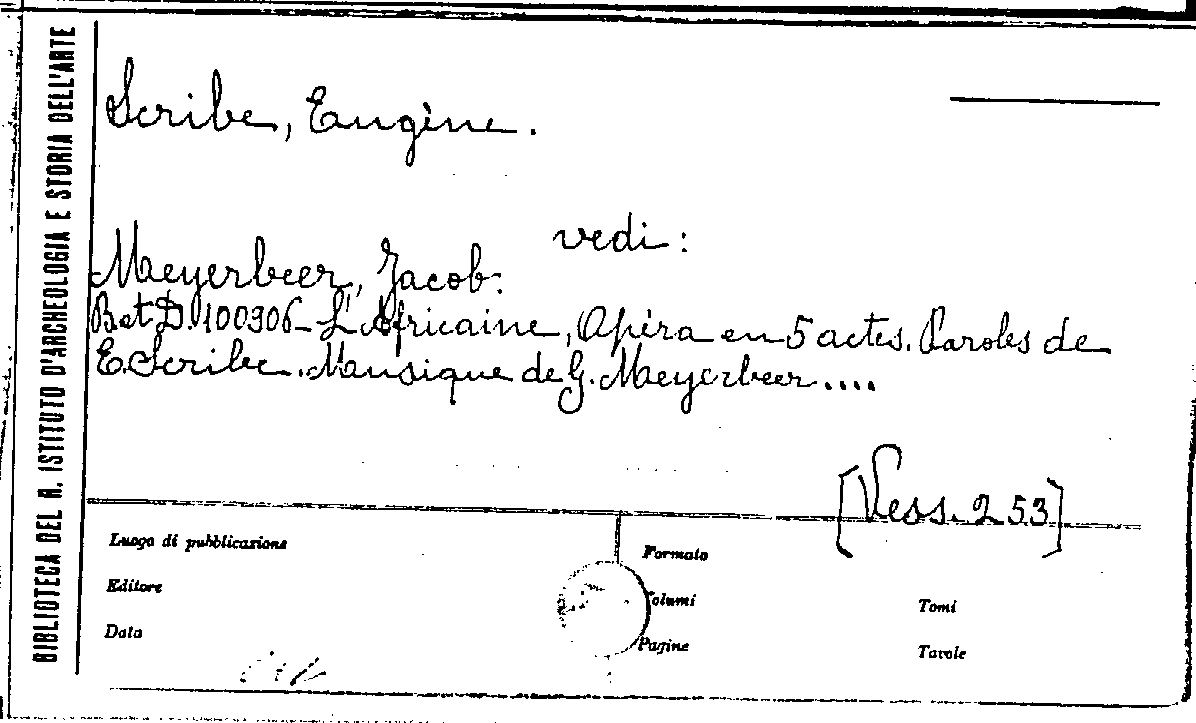 BIBLIOTECA DEL R. ISTITUTO D'ARCHEOLOGIA E STORIA DELL'ARTE
Scribe, Eugène.
vedi:
Meyerbeer, Jacob:
L'Africaine, Opèra en 5 actes. Paroles de
E. Scribe. Mausique de G. Meyerbeer....
[Vess. 253]
Luogo di pubblicazione
Formato
Editore
Volumi
Tomi
Data
Pagine
Tavole